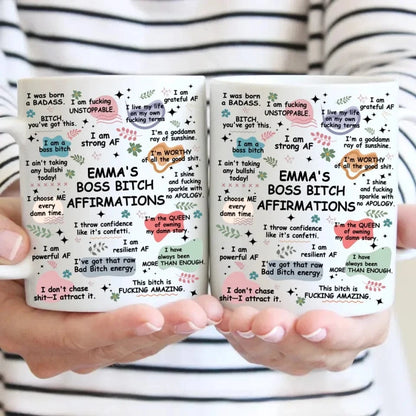 I was born
a BADASS.
I am fucking
UNSTOPPABLE.
I am
grateful AF
BITCH,
you've got this.
I live my life
on my own
fucking terms
I am
strong AF
I'm a goddamn
ray of sunshine.
I am a
boss bitch
I'm WORTHY
of all the good shit.
I ain't taking
any bullshi
today!
EMMA'S
BOSS BITCH
AFFIRMATIONS
I shine
and fucking
sparkle with
no APOLOGY.
I choose ME
every
damn time.
I throw confidence
like it's confetti.
I'm the QUEEN
of owning
my damn story.
I am
powerful AF
I am
resilient AF
I have
always been
MORE THAN ENOUGH.
I've got that raw
Bad Bitch energy.
I don't chase
shit—I attract it.
This bitch is
FUCKING AMAZING.
I was born
a BADASS.
I am fucking
UNSTOPPABLE.
I am
grateful AF
BITCH,
you've got this.
I live my life
on my own
fucking terms
I am
strong AF
I'm a goddamn
ray of sunshine.
I am a
boss bitch
I'm WORTHY
of all the good shit.
I ain't taking
any bullshi
today!
EMMA'S
BOSS BITCH
AFFIRMATIONS
I shine
and fucking
sparkle with
no APOLOGY.
I choose ME
every
damn time.
I throw confidence
like it's confetti.
I'm the QUEEN
of owning
my damn story.
I am
powerful AF
I am
resilient AF
I have
always been
MORE THAN ENOUGH.
I've got that raw
Bad Bitch energy.
I don't chase
shit—I attract it.
This bitch is
FUCKING AMAZING.